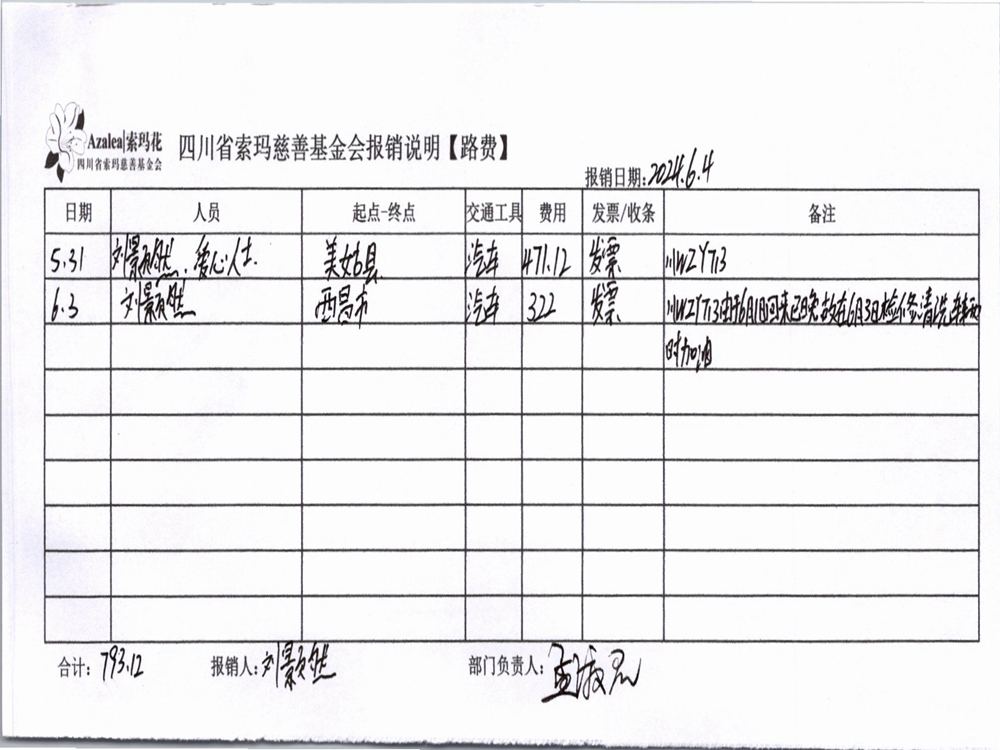 Azalea|索玛花
四川省索玛慈善基金会
四川省索玛慈善基金会报销说明【路费】
报销日期:2024.6.4
日期 人员 起点-终点 交通工具 费用 发票/收条 备注
5.31 刘景颖然、爱心人士. 美姑县 汽车 471.12 发票 川WZY713
6.3 刘颢然 西昌市 汽车 322 发票 川WZY713由于6月1日回来已晚故在6月3日检修清洗车辆
时加油
合计: 793.12 报销人: 刘颢然 部门负责人: